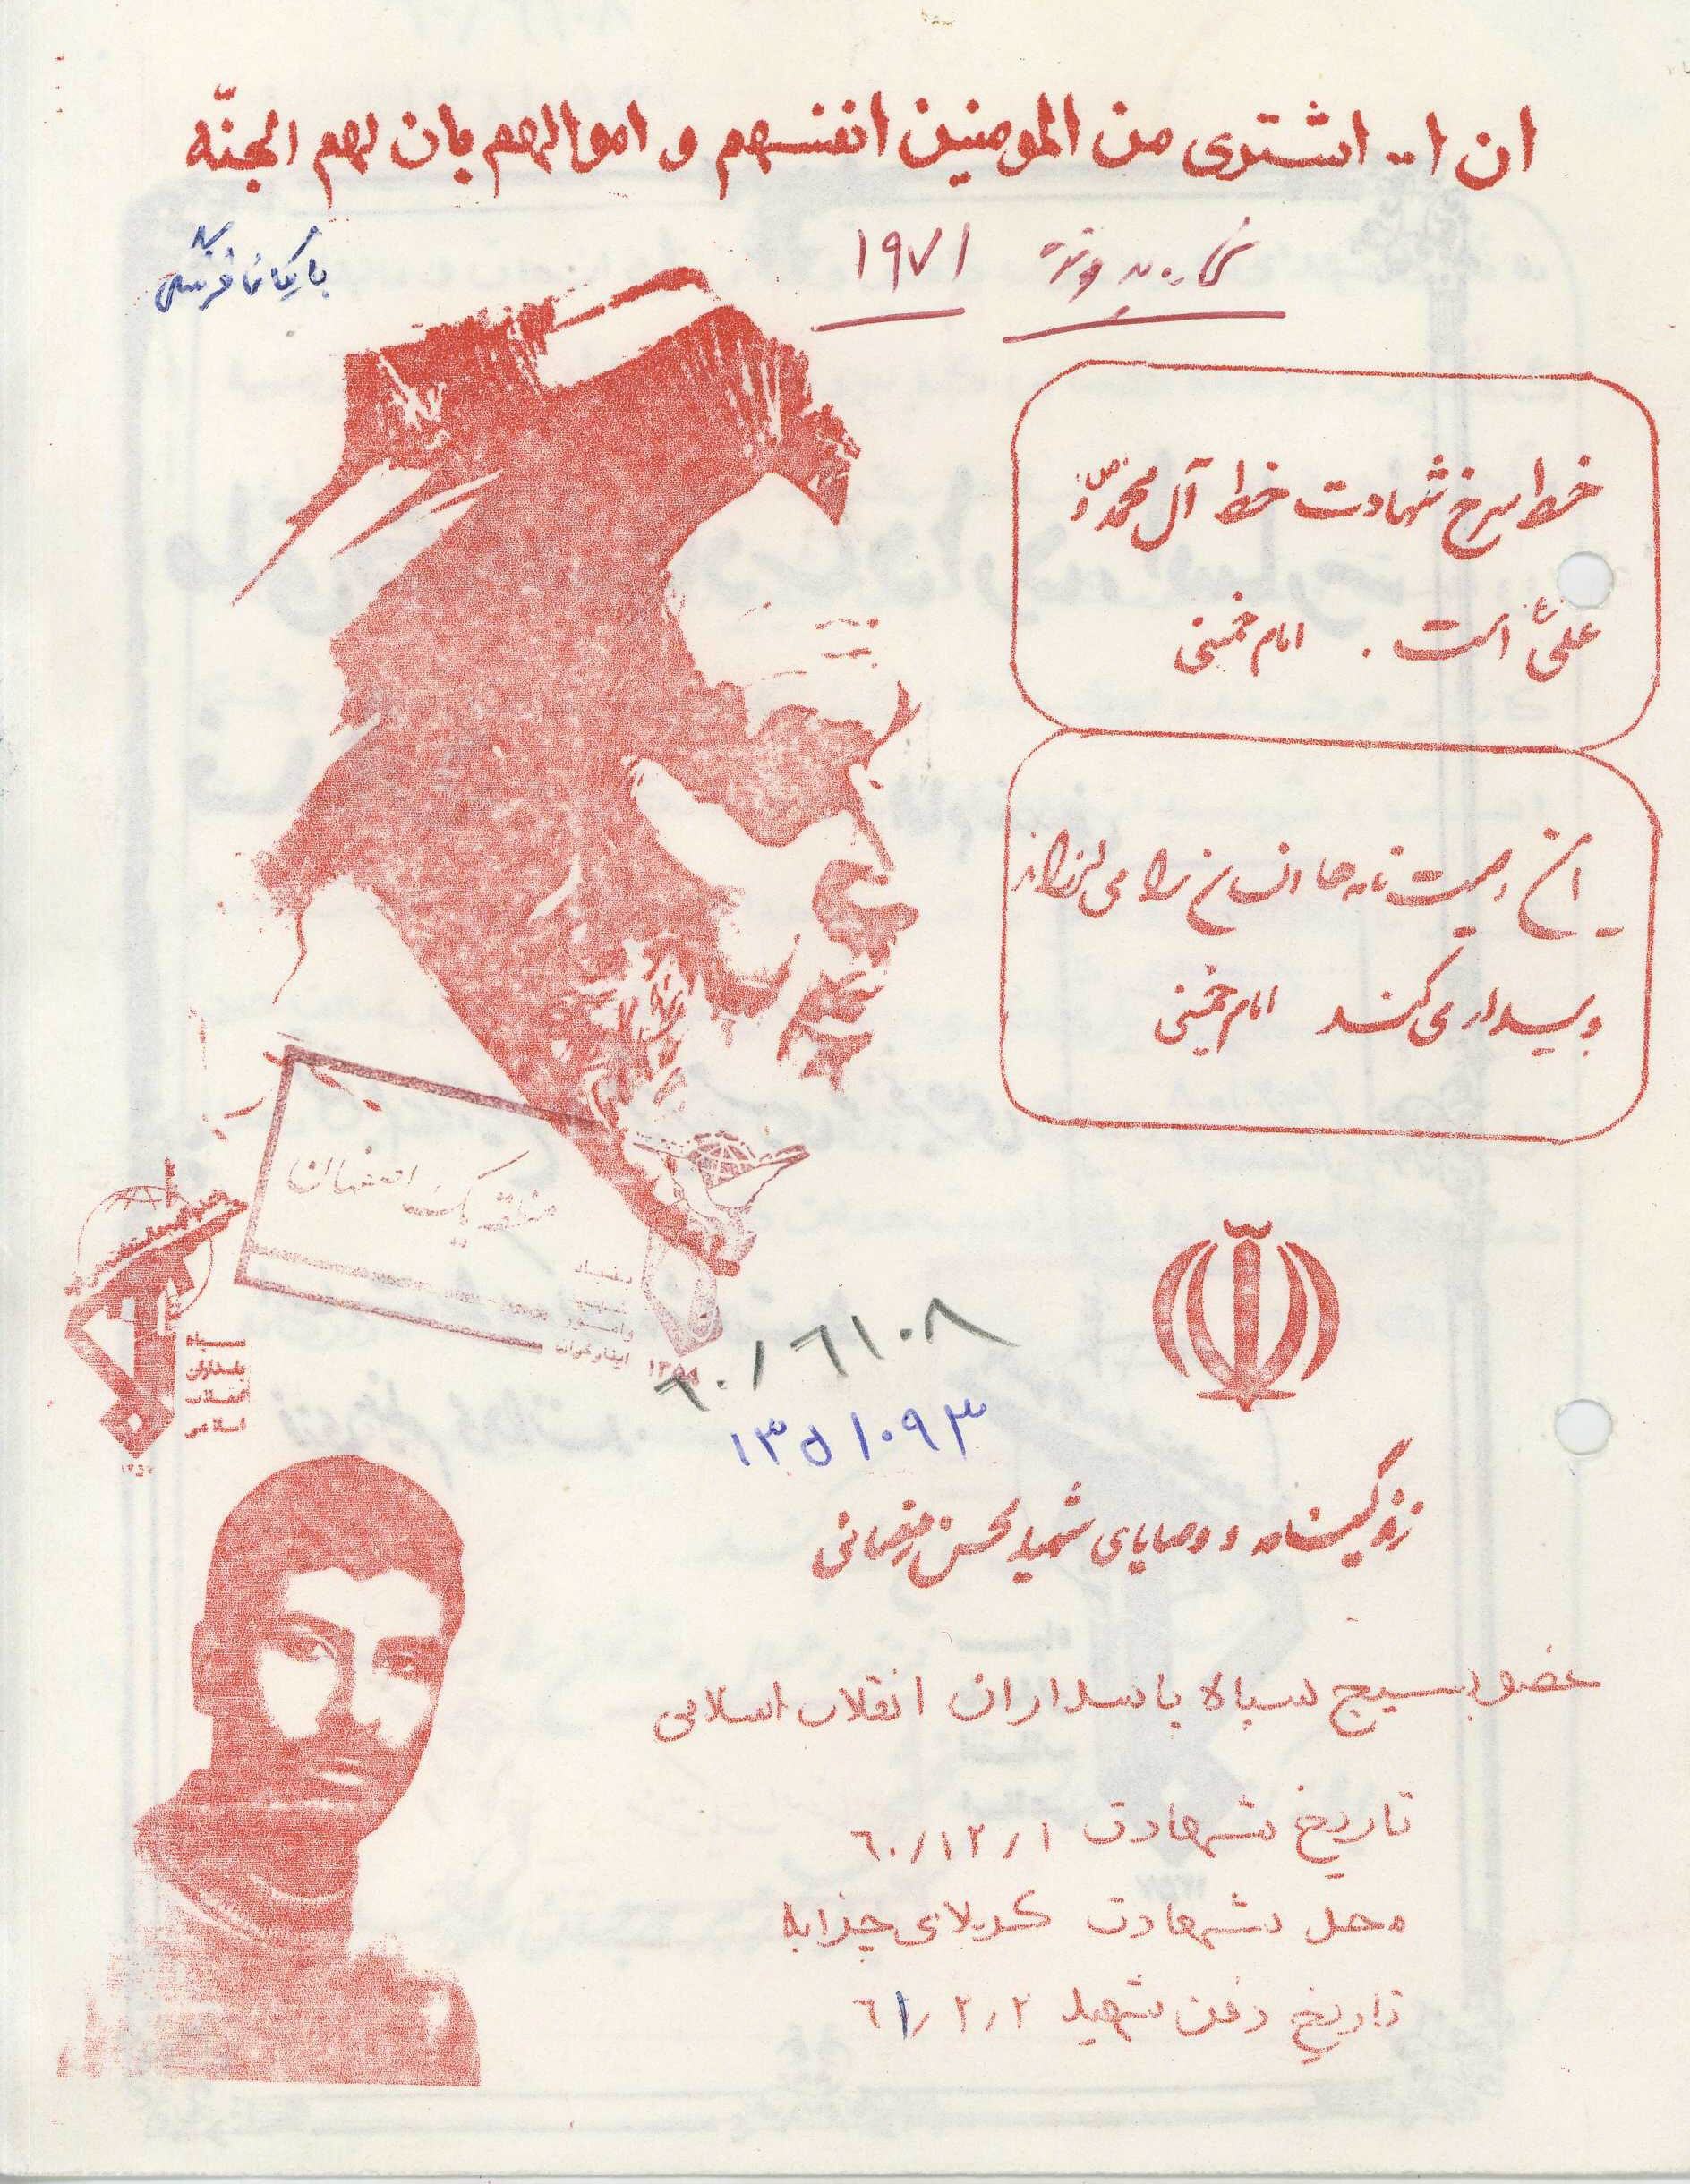 ان ا.. اشتری من المومنین انفسهم و اموالهم بان لهم الجنّه
شماره پرونده ۱۹۷۱
خط سرخ شهادت خط آل محمد و
علی است . امام خمینی
این وصیت نامه ها انسان را می لرزاند
و بیدار می کند امام خمینی
منطقه یک اصفهان
۶۰/۶۱۰۸
۱۳۵۱۰۹۳
زندگینامه و وصایای شهید محسن رمضانی
عضو بسیج سپاه پاسداران انقلاب اسلامی
تاریخ شهادت ۶۰/۱۲/۱
محل شهادت کربلای چزابه
تاریخ دفن شهید ۶۱/۲/۲